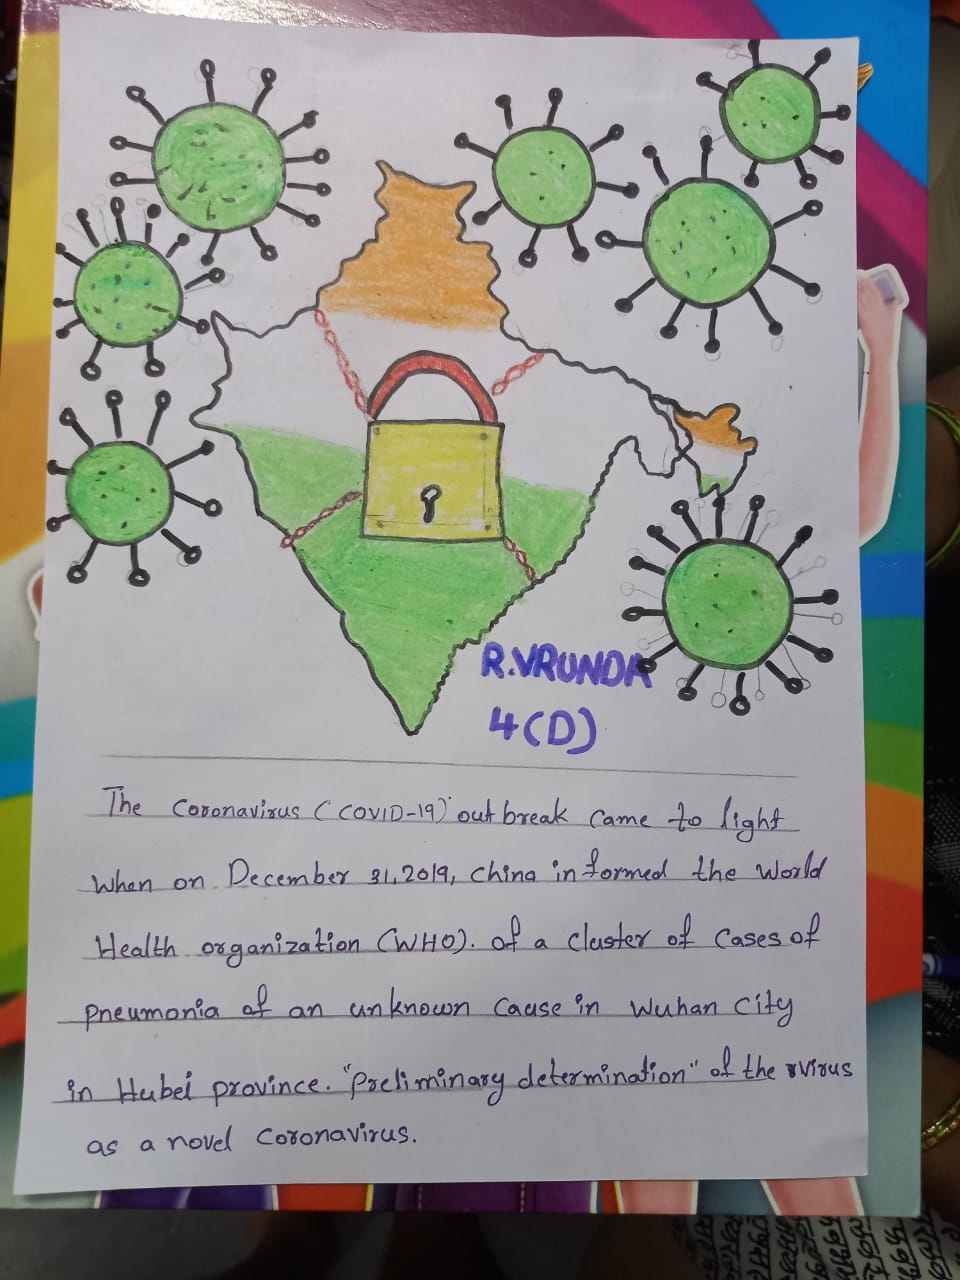 R.VRUNDA
4(D)
The Coronavirus (COVID-19) out break came to light
when on December 31, 2019, China informed the World
Health organization (WHO). of a cluster of Cases of
pneumonia of an unknown Cause in Wuhan City
in Hubei province. "Preliminary determination" of the virus
as a novel Coronavirus.